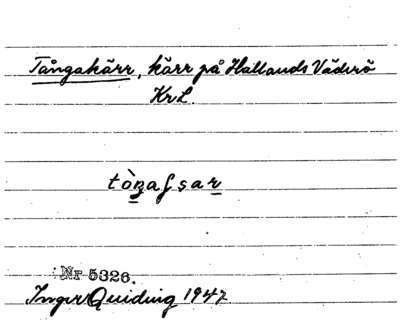 Tångakärr, kärr på Hallands Väderö
Kr L.
Nr 5326.
Inger Quiding 1947